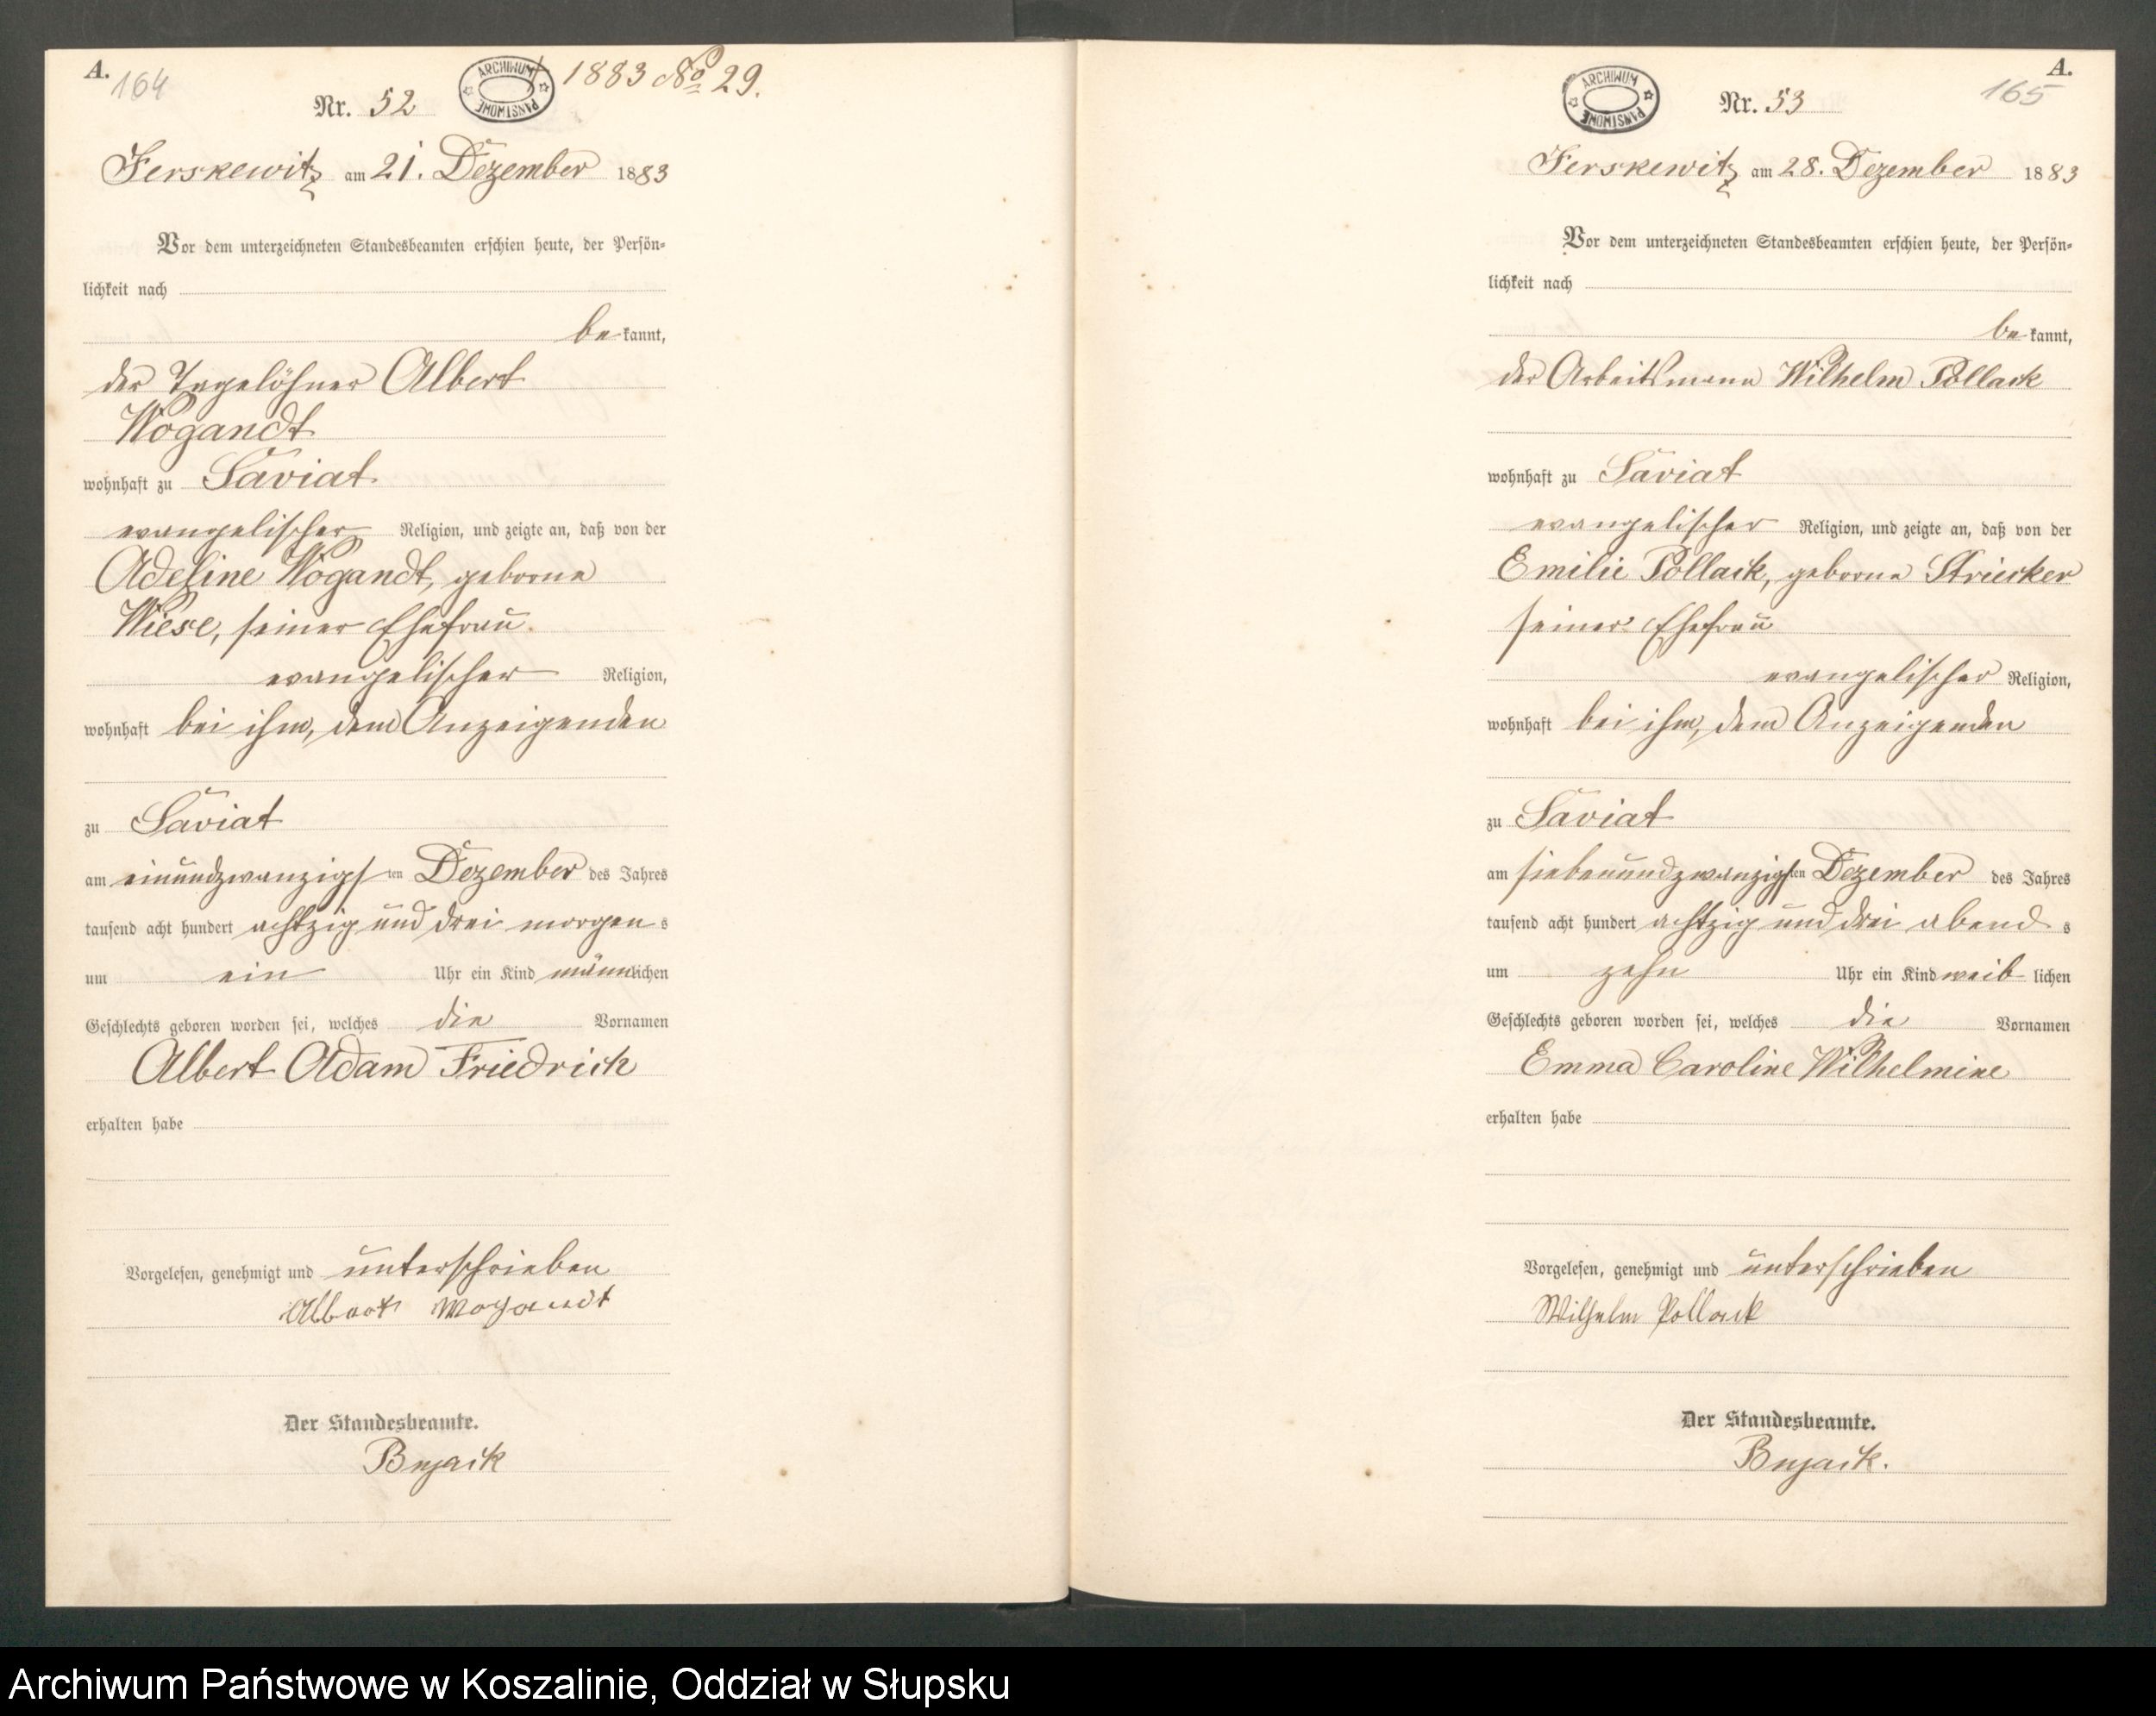 A.
164
ARCHIWUM PAŃSTWOWE
† 1883 No 29.
Nr. 52
Jerskewitz am 21. Dezember 1883
Vor dem unterzeichneten Standesbeamten erschien heute, der Persön-
lichkeit nach
be kannt,
der Tagelöhner Albert
Wogandt
wohnhaft zu Saviat
evangelischer Religion, und zeigte an, daß von der
Adeline Wogandt, geborne
Wiese, seiner Ehefrau
evangelischer Religion,
wohnhaft bei ihm, dem Anzeigenden
zu Saviat
am einundzwanzigsten Dezember des Jahres
tausend acht hundert achtzig und drei morgens
um ein Uhr ein Kind männlichen
Geschlechts geboren worden sei, welches die Vornamen
Albert Adam Friedrich
erhalten habe
Vorgelesen, genehmigt und unterschrieben
Albert Wogandt
Der Standesbeamte.
Bujack
A.
165
ARCHIWUM PAŃSTWOWE
Nr. 53
Jerskewitz am 28. Dezember 1883
Vor dem unterzeichneten Standesbeamten erschien heute, der Persön-
lichkeit nach
be kannt,
der Arbeitsmann Wilhelm Pollack
wohnhaft zu Saviat
evangelischer Religion, und zeigte an, daß von der
Emilie Pollack, geborne Striecker
seiner Ehefrau
evangelischer Religion,
wohnhaft bei ihm, dem Anzeigenden
zu Saviat
am siebenundzwanzigsten Dezember des Jahres
tausend acht hundert achtzig und drei abends
um zehn Uhr ein Kind weiblichen
Geschlechts geboren worden sei, welches die Vornamen
Emma Caroline Wilhelmine
erhalten habe
Vorgelesen, genehmigt und unterschrieben
Wilhelm Pollack
Der Standesbeamte.
Bujack.
Archiwum Państwowe w Koszalinie, Oddział w Słupsku